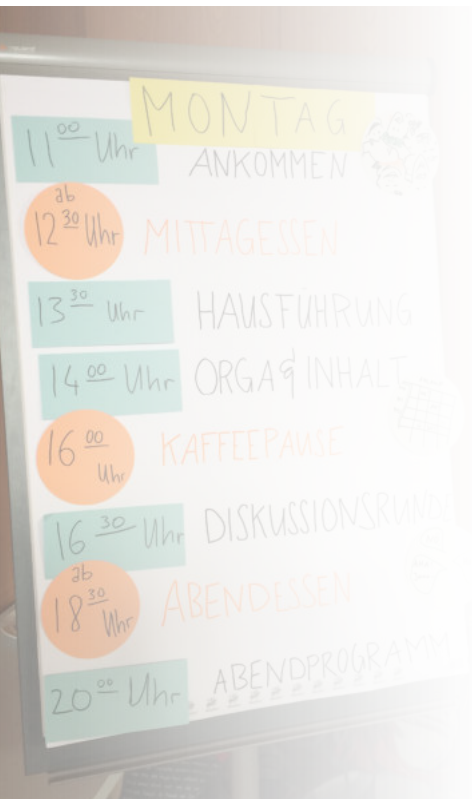 MONTAG
11 00 Uhr ANKOMMEN
ab
12 30 Uhr MITTAGESSEN
13 30 Uhr HAUSFÜHRUNG
14 00 Uhr ORGA & INHALT
16 00 Uhr KAFFEEPAUSE
16 30 Uhr DISKUSSIONSRUNDE
ab
18 30 Uhr ABENDESSEN
20 00 Uhr ABENDPROGRAMM